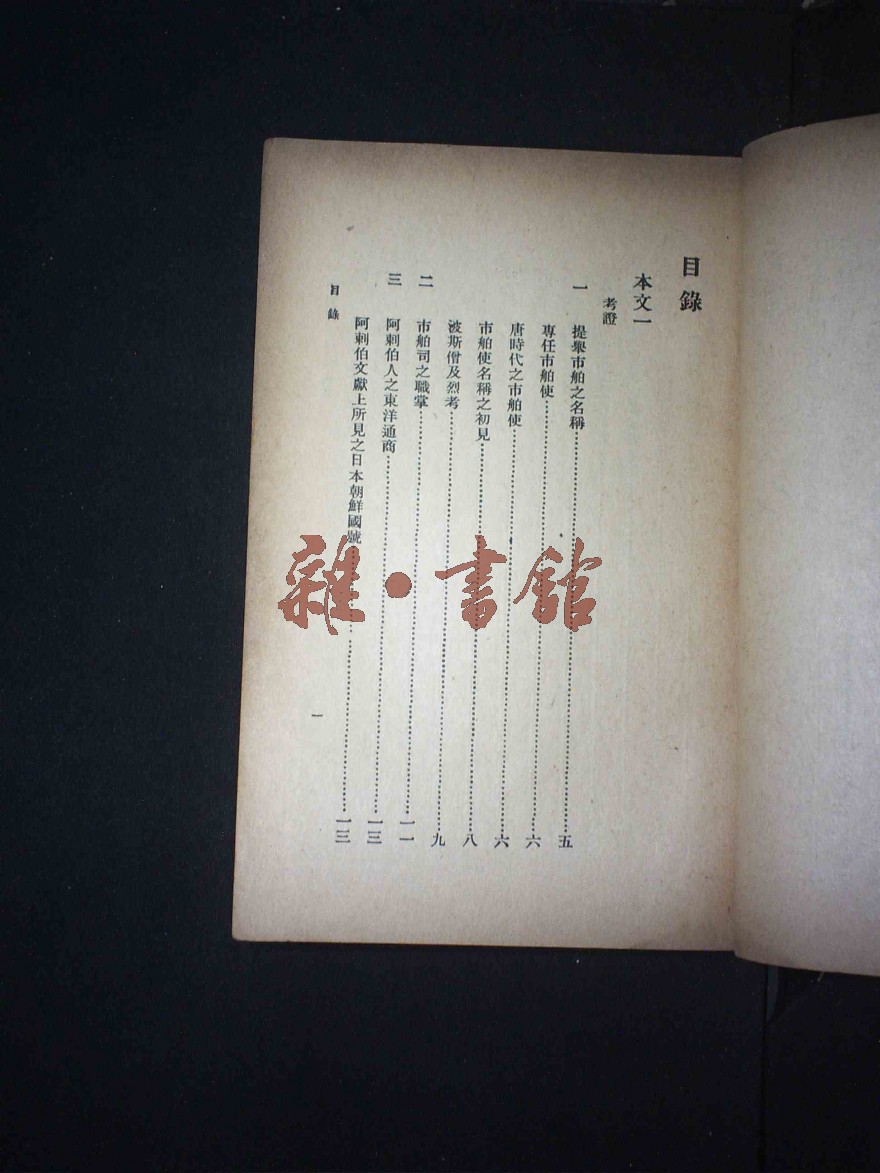 目錄
本文一
考證
一 提舉市舶之名稱……五
專任市舶使……六
唐時代之市舶使……六
市舶使名稱之初見……八
波斯僧及烈考……九
二 市舶司之職掌……一一
三 阿剌伯人之東洋通商……一三
阿剌伯文獻上所見之日本朝鮮國號……一三
目錄
一
雜·書館